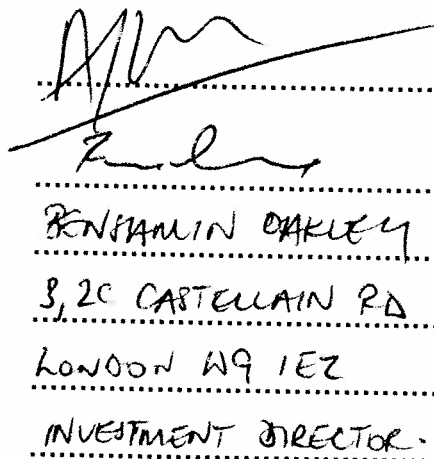 BENJAMIN OAKLEY
3, 2C CASTELLAIN RD
LONDON W9 1EZ
INVESTMENT DIRECTOR.